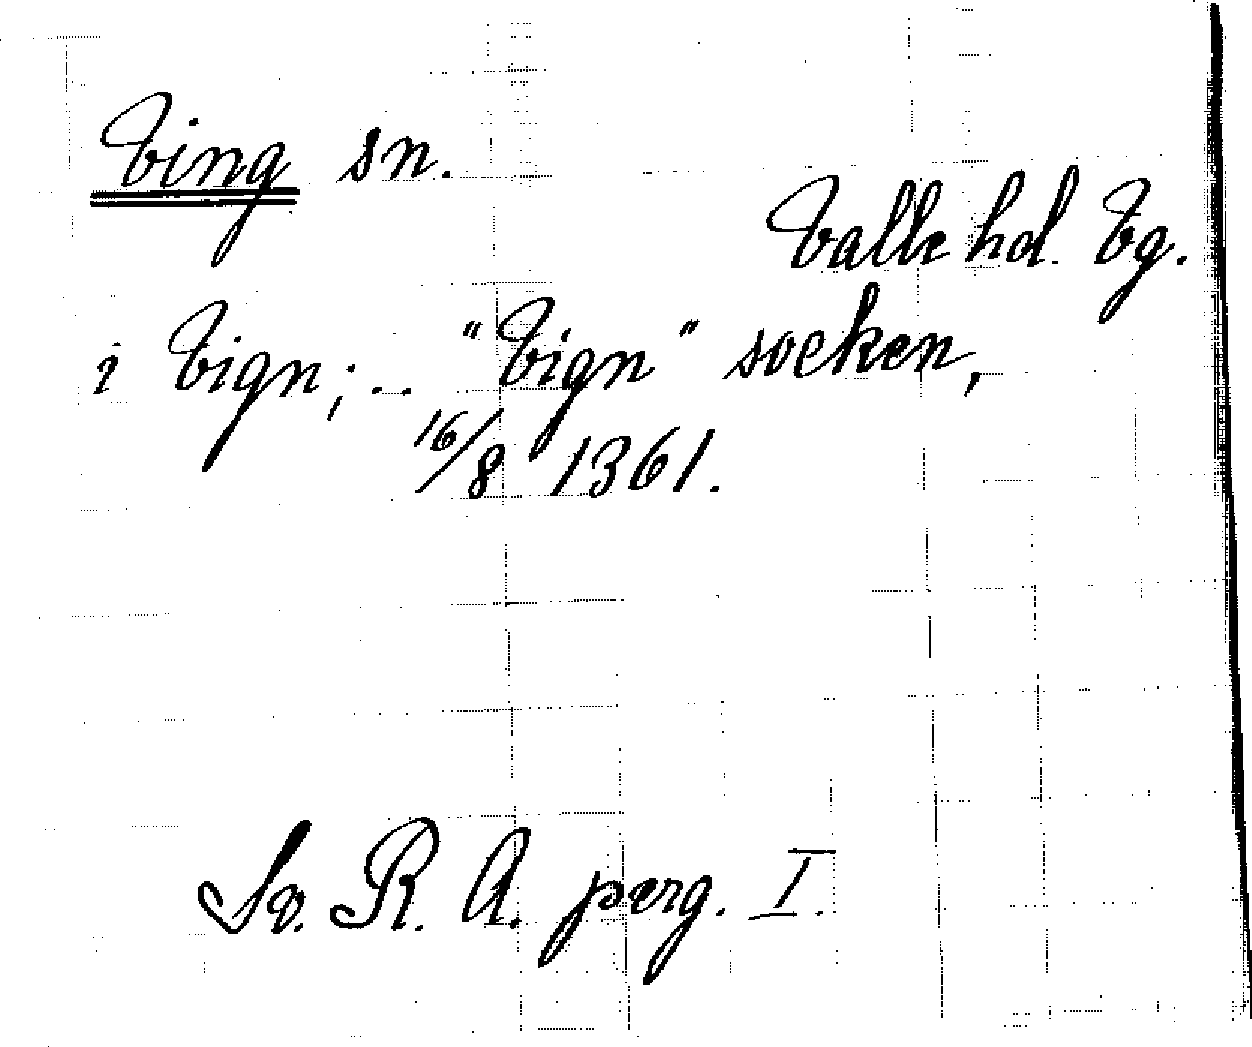 Ving sn.
Valle hd. Vg.
i Vign; .. "Vign" socken,
16/8 1361.
Sv. R. A. perg. I.